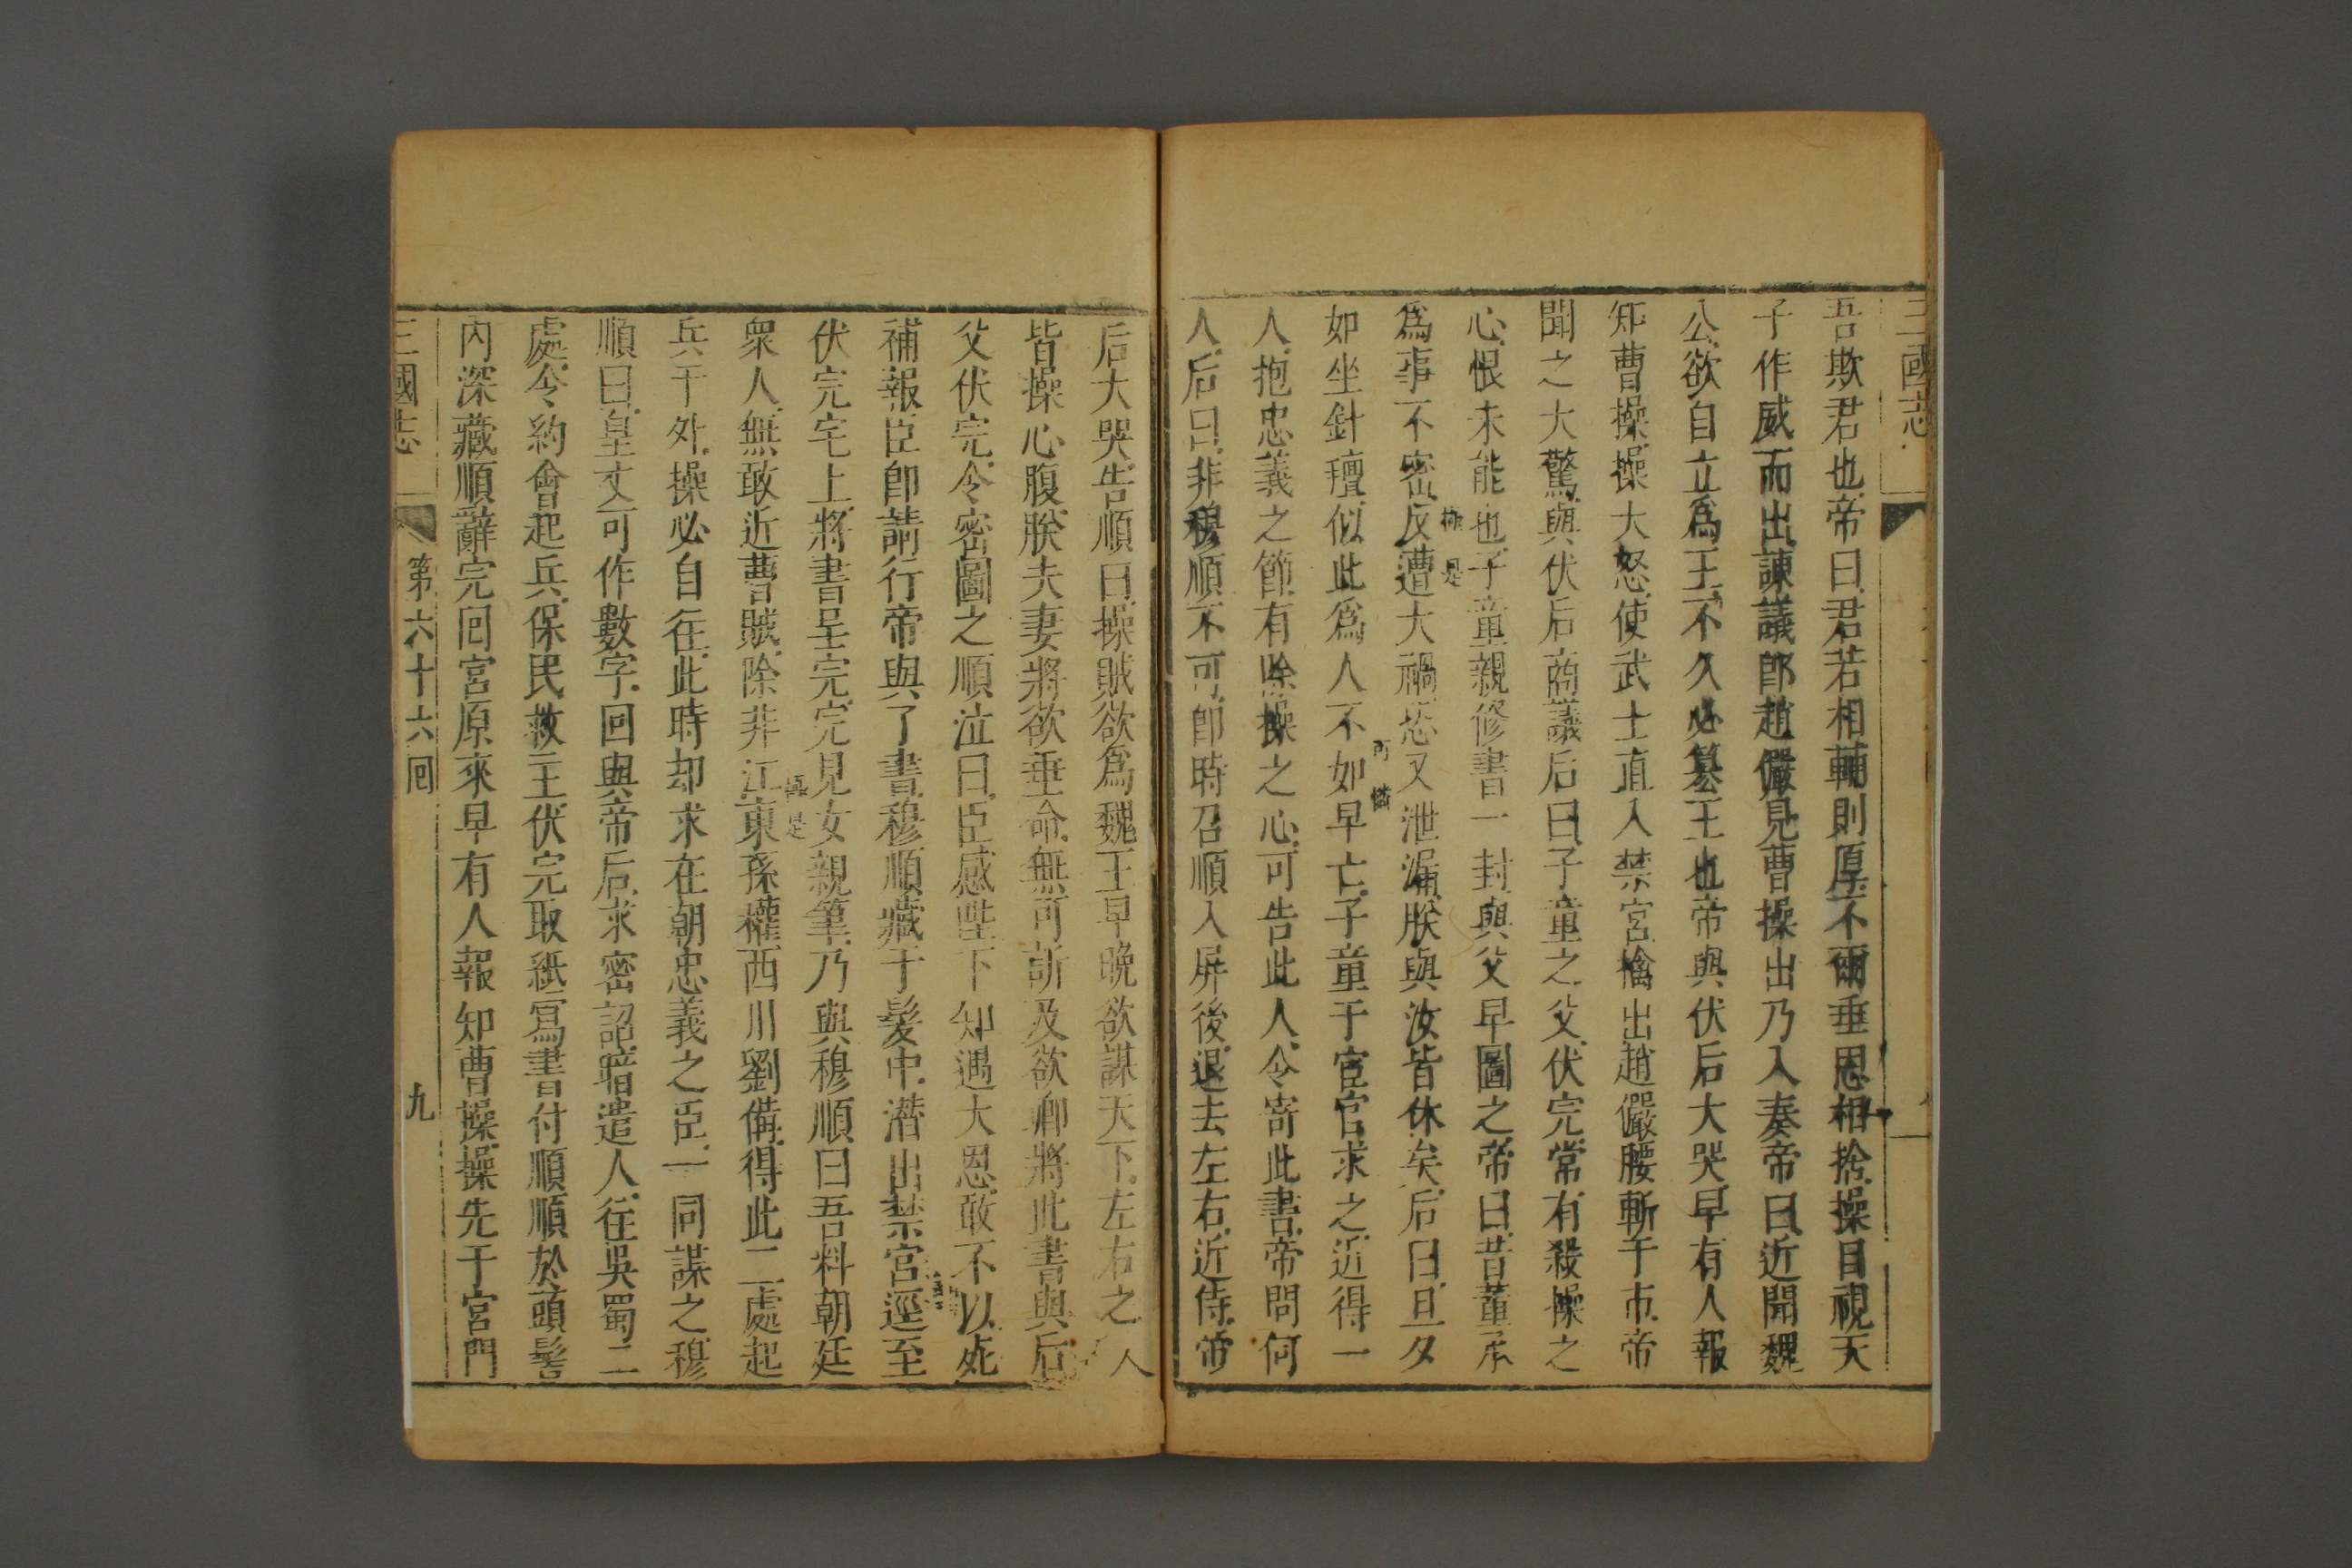 三國志
吾欺君也帝曰君若相輔則厚不爾垂恩相捨操目視天
子作威而出諫議郎趙儼見曹操出乃入奏帝曰近聞魏
公欲自立爲王不久必篡王也帝與伏后大哭早有人報
知曹操操大怒使武士直入禁宮擒出趙儼腰斬于市帝
聞之大驚與伏后商議后曰子童之父伏完常有殺操之
心恨未能也子童親修書一封與父早圖之帝曰昔董承
爲事不密反遭大禍恐又泄漏朕與汝皆休矣后曰旦夕
如坐針氊似此爲人不如早亡子童于宦官求之近得一
人抱忠義之節有除操之心可告此人令寄此書帝問何
人后曰非穆順不可卽時召順入屏後退去左右近侍帝
后大哭告順曰操賊欲爲魏王早晚欲謀天下左右之人
皆操心腹朕夫妻將欲垂命無可訴及欲卿將此書與后
父伏完令密圖之順泣曰臣感陛下知遇大恩敢不以死
補報臣卽請行帝與了書穆順藏于髮中潛出禁宮逕至
伏完宅上將書呈完完見女親筆乃與穆順曰吾料朝廷
衆人無敢近曹賊除非江東孫權西川劉備得此二處起
兵于外操必自往此時却求在朝忠義之臣一同謀之穆
順曰皇丈可作數字回與帝后求密詔暗遣人往吳蜀二
處令約會起兵保民救主伏完取紙寫書付順順於頭髻
內深藏順辭完回宮原來早有人報知曹操操先于宮門
三國志
第六十六回
九